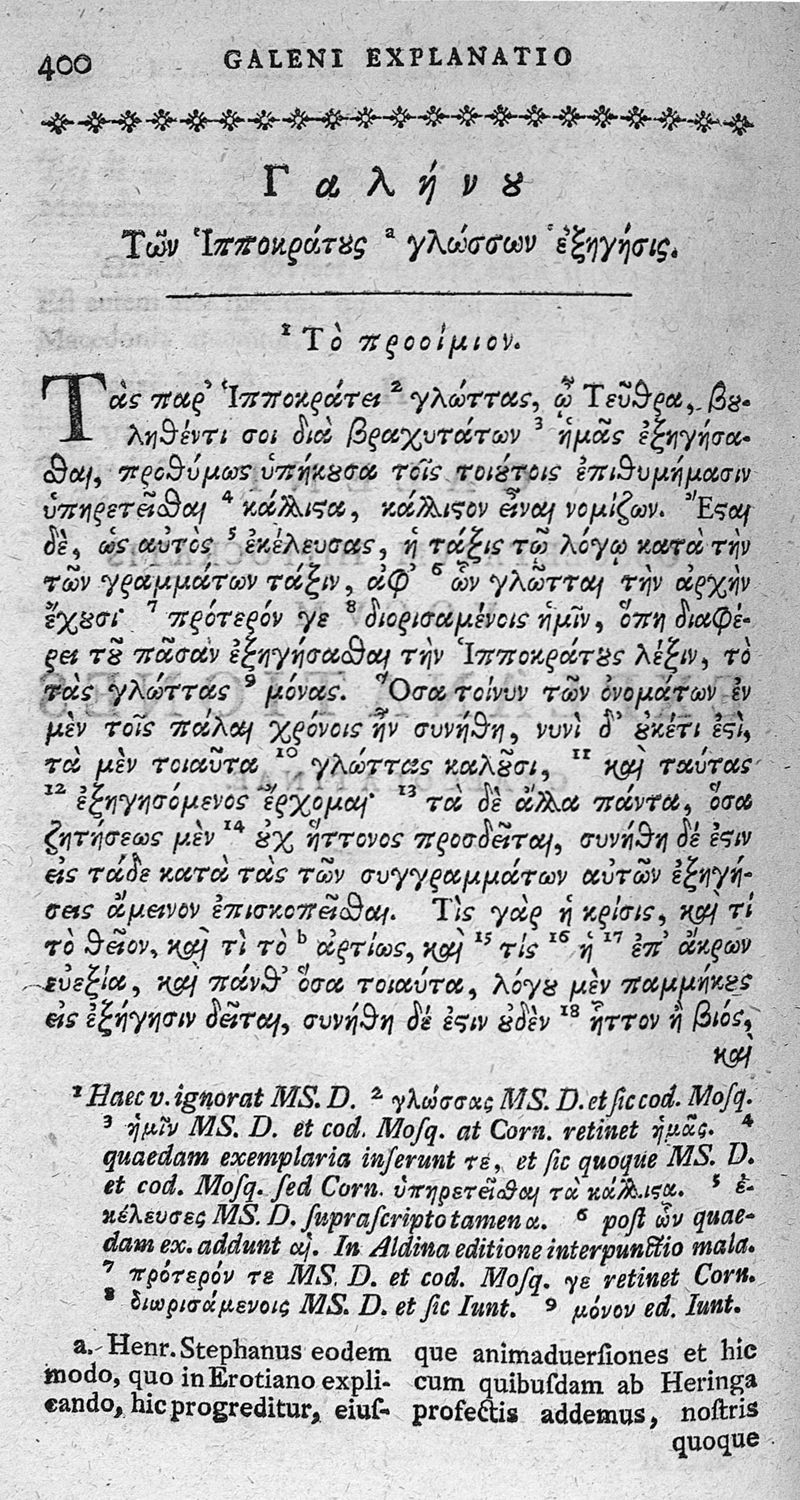 400 GALENI EXPLANATIO
Γαλήνου
Τῶν Ἱπποκράτους a γλώσσων ἐξήγησις.
1 Τὸ προοίμιον.
Τὰς παρ' Ἱπποκράτει 2 γλώττας, ὦ Τεῦθρα, βου-
ληθέντι σοι διὰ βραχυτάτων 3 ἡμᾶς ἐξηγήσα-
σθαι, προθύμως ὑπήκουσα τοῖς τοιούτοις ἐπιθυμήμασιν
ὑπηρετεῖσθαι 4 κάλλιστα, κάλλιστον εἶναι νομίζων. Ἔσται
δὲ, ὡς αὐτὸς 5 ἐκέλευσας, ἡ τάξις τῷ λόγῳ κατὰ τὴν
τῶν γραμμάτων τάξιν, ἀφ' 6 ὧν γλῶτται τὴν ἀρχὴν
ἔχουσι· 7 πρότερόν γε 8 διορισαμένοις ἡμῖν, ὅπη διαφέ-
ρει τοῦ πᾶσαν ἐξηγήσασθαι τὴν Ἱπποκράτους λέξιν, τὸ
τὰς γλώττας 9 μόνας. Ὅσα τοίνυν τῶν ὀνομάτων ἐν
μὲν τοῖς πάλαι χρόνοις ἦν συνήθη, νυνὶ δ' οὐκέτι ἐστὶ,
τὰ μὲν τοιαῦτα 10 γλώττας καλοῦσι, 11 καὶ ταύτας
12 ἐξηγησόμενος ἔρχομαι· 13 τὰ δὲ ἄλλα πάντα, ὅσα
ζητήσεως μὲν 14 οὐχ ἥττονος προσδεῖται, συνήθη δέ ἐστιν
εἰς τάδε κατὰ τὰς τῶν συγγραμμάτων αὐτῶν ἐξηγή-
σεις ἄμεινον ἐπισκοπεῖσθαι. Τὶς γὰρ ἡ κρίσις, καὶ τί
τὸ θεῖον, καὶ τὶ τὸ b ἀρτίως, καὶ 15 τίς 16 ἡ 17 ἐπ' ἄκρων
εὐεξία, καὶ πάνθ' ὅσα τοιαύτα, λόγου μὲν παμμήκους
εἰς ἐξήγησιν δεῖται, συνήθη δέ ἐστιν οὐδὲν 18 ἧττον ἢ βιός,
καὶ
1 Haec v. ignorat MS. D. 2 γλώσσας MS. D. et ſic cod. Moſq.
3 ἡμῖν MS. D. et cod. Moſq. at Corn. retinet ἡμᾶς. 4
quaedam exemplaria inſerunt τε, et ſic quoque MS. D.
et cod. Moſq. ſed Corn. ὑπηρετεῖσθαι τὰ κάλλιστα. 5 ἐ-
κέλευσες MS. D. ſupraſcripto tamen α. 6 poſt ὧν quae-
dam ex. addunt αἱ. In Aldina editione interpunctio mala.
7 πρότερόν τε MS. D. et cod. Moſq. γε retinet Corn.
8 διωρισάμενοις MS. D. et ſic Iunt. 9 μόνον ed. Iunt.
a. Henr. Stephanus eodem
modo, quo in Erotiano expli-
cando, hic progreditur, eiuſ-
que animaduerſiones et hic
cum quibuſdam ab Heringa
profectis addemus, noſtris
quoque